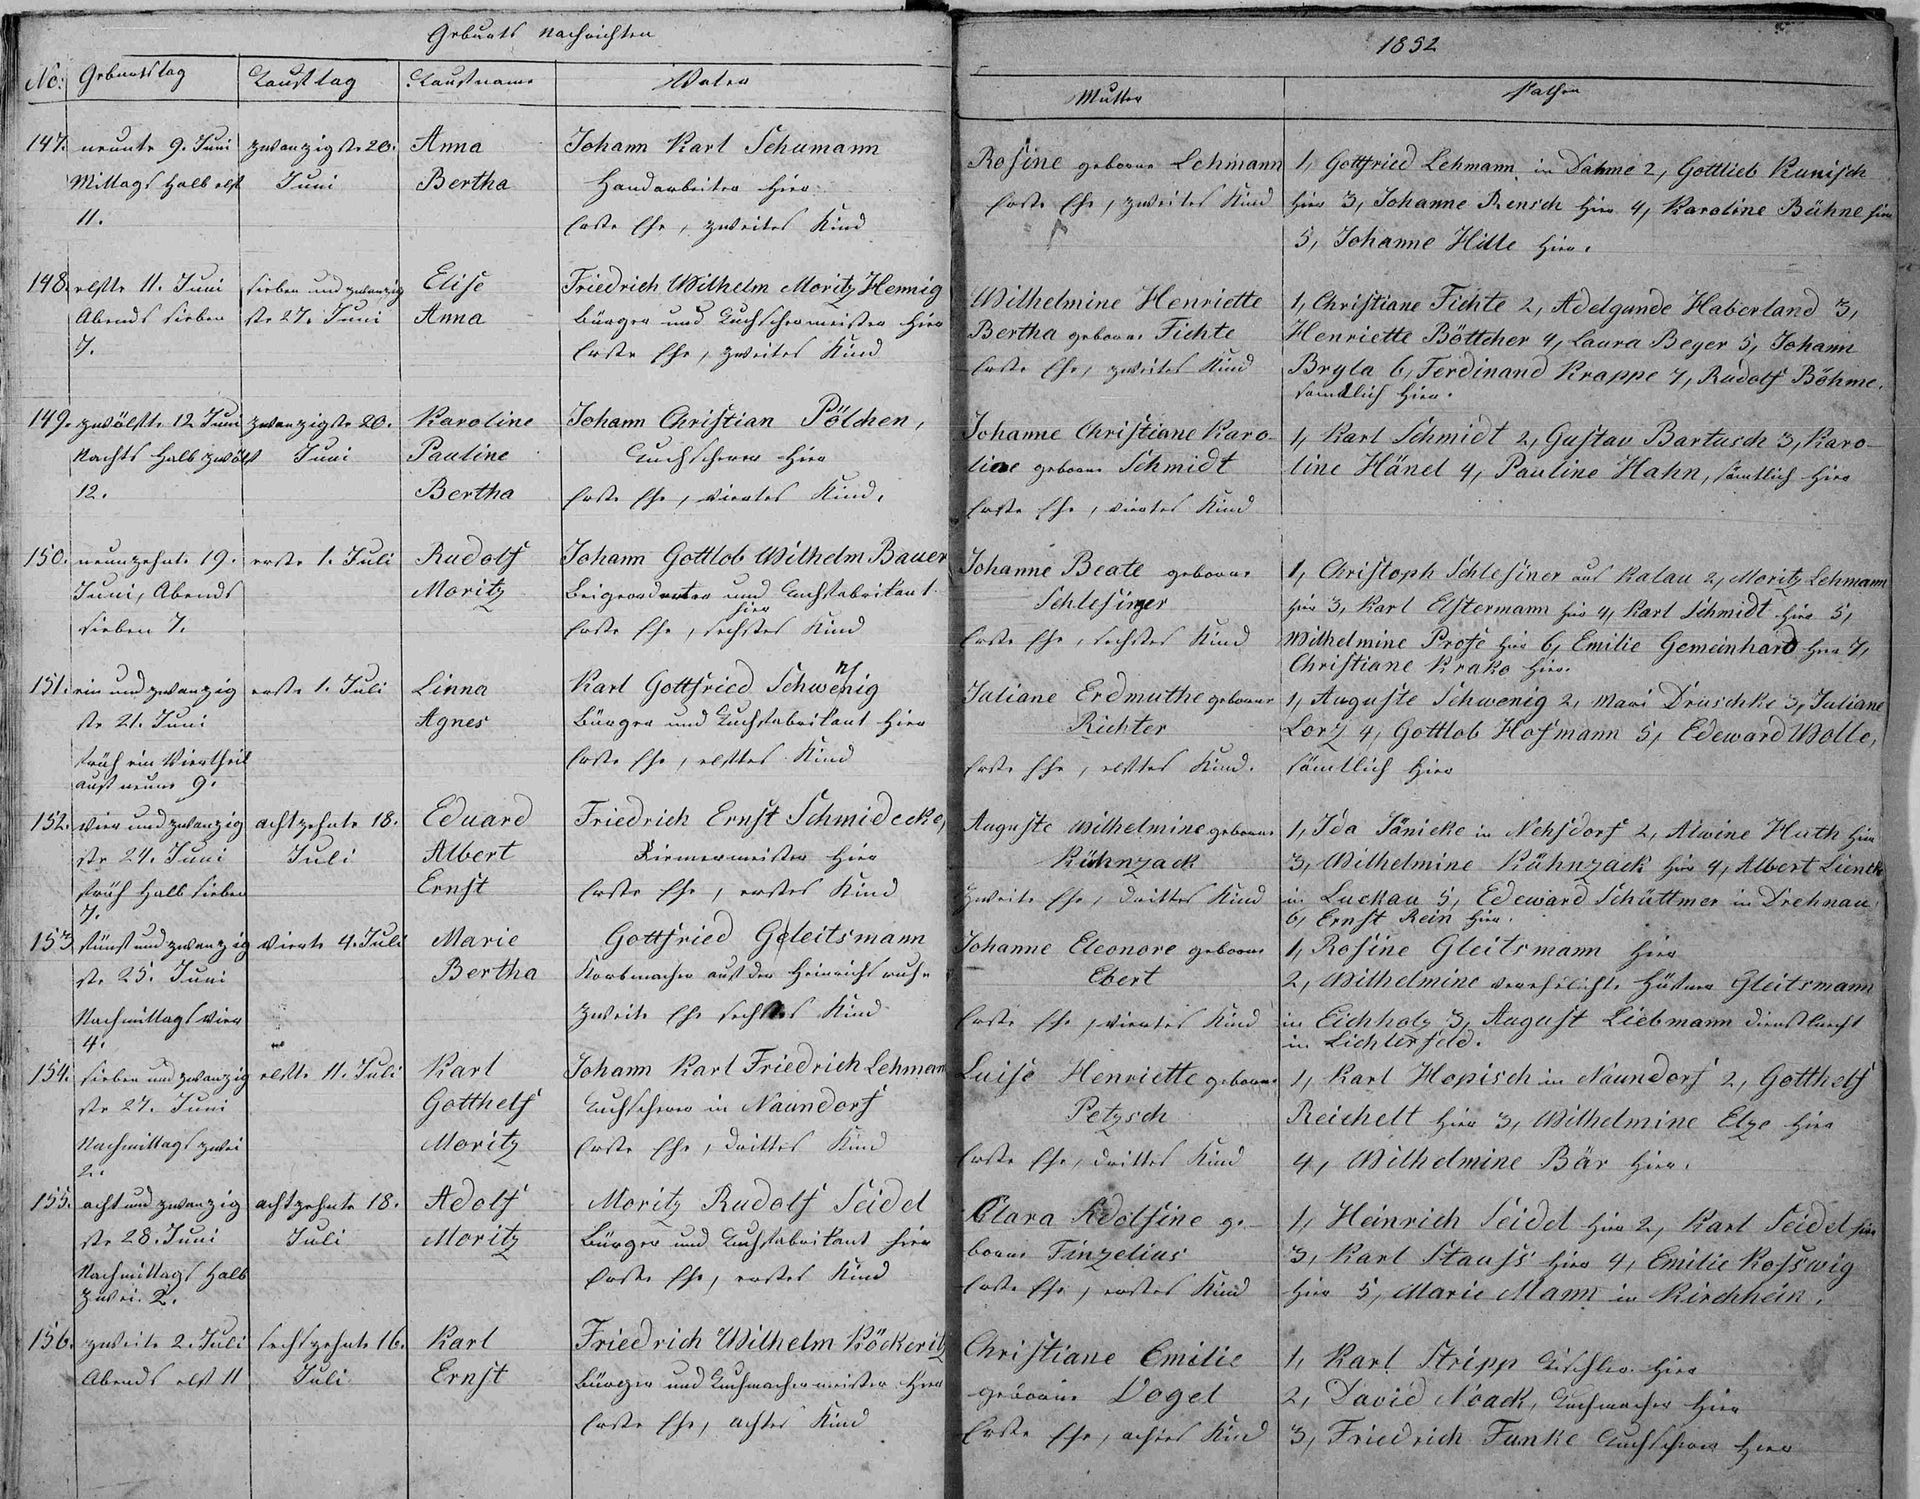 Geburts Nachrichten
No. Geburtstag Tauftag Taufname Vater
147. neunte 9. Juni zwanzigste 20. Anna Johann Karl Schumann
Mittags halb elf Juni Bertha Handarbeiter hier
11. Erste Ehe, zweites Kind
148. elfte 11. Juni sieben und zwanzig Elise Friedrich Wilhelm Moritz Hennig
Abends sieben ste 27. Juni Anna Bürger und Tuchscheermeister hier
7. Erste Ehe, zweites Kind
149. zwölfte 12 Juni zwanzigste 20. Karoline Johann Christian Pölchen,
Nachts halb zwölf Juni Pauline Tuchscheerer hier
12. Bertha Erste Ehe, viertes Kind.
150. neunzehnte 19. erste 1. Juli Rudolf Johann Gottlob Wilhelm Bauer
Juni, Abends Moritz Beigeordneter und Tuchfabrikant
hier
sieben 7. Erste Ehe, sechstes Kind
151. ein und zwanzig erste 1. Juli Linna Karl Gottfried Schwenig
ste 21. Juni Agnes Bürger und Tuchfabrikant hier
früh ein Viertheil Erste Ehe, elftes Kind
auf neune 9.
152. vier und zwanzig achtzehnte 18. Eduard Friedrich Ernst Schmidecke,
ste 24. Juni Juli Albert Riemermeister hier
früh halb sieben Ernst Erste Ehe, erstes Kind
7.
153. fünf und zwanzig vierte 4. Juli Marie Gottfried Geleitsmann
ste 25. Juni Bertha Korbmacher auf der Heinrichsruhe
Nachmittags vier zweite Ehe sechstes Kind
4.
154. sieben und zwanzig elfte 11. Juli Karl Johann Karl Friedrich Lehmann
ste 27. Juni Gotthelf Tuchscheerer in Naundorf
Nachmittags zwei Moritz Erste Ehe, drittes Kind
2.
155. acht und zwanzig achtzehnte 18. Adolf Moritz Rudolf Seidel
ste 28. Juni Juli Moritz Bürger und Tuchfabrikant hier
Nachmittags halb Erste Ehe, erstes Kind
zwei. 2.
156. zweite 2. Juli sechszehnte 16. Karl Friedrich Wilhelm Köckeritz
Abends elf 11 Juli Ernst Bürger und Tuchmachermeister hier
Erste Ehe, achtes Kind
1852
Mutter Pathen
Rosine geborne Lehmann 1, Gottfried Lehmann in Dahme 2, Gottlieb Kunisch
Erste Ehe, zweites Kind hier 3, Johanne Rensch hier 4, Karoline Bühne hier
5, Johanne Hille hier.
Wilhelmine Henriette 1, Christiane Fichte 2, Adelgunde Haberland 3,
Bertha geborne Fichte Henriette Böttcher 4, Laura Beger 5, Johann
Erste Ehe, zweites Kind Bryla 6, Ferdinand Krappe 7, Rudolf Böhme.
sämtlich hier.
Johanne Christiane Karo- 1, Karl Schmidt 2, Gustav Bartusch 3, Karo-
line geborne Schmidt line Hänel 4, Pauline Hahn, sämtlich hier
Erste Ehe, viertes Kind
Johanne Beate geborne 1, Christoph Schlesiner aus Kalau 2, Moritz Lehmann
Schlesinger hier 3, Karl Elstermann hier 4, Karl Schmidt hier 5,
Erste Ehe, sechstes Kind Wilhelmine Prose hier 6, Emilie Gemeinhard hier 7,
Christiane Krako hier.
Juliane Erdmuthe geborne 1, Auguste Schwenig 2, Mari Druschke 3, Juliane
Richter Lorz 4, Gottlob Hofmann 5, Edeward Wolle,
Erste Ehe, elftes Kind. sämtlich hier
Auguste Wilhelmine geborne 1, Ida Jänicke in Nehsdorf 2, Alwine Huth hier
Kühnzack 3, Wilhelmine Kühnzack hier 4, Albert Lientk
Zweite Ehe, drittes Kind in Luckau 5, Edeward Schüttmer in Drehnau
6, Ernst Rein hier.
Johanne Eleonore geborne 1, Rosine Gleitsmann hier
Ebert 2, Wilhelmine verehlichte Hüfner Gleitsmann
Erste Ehe, viertes Kind in Eichholz 3, August Liebmann Dienstknecht
in Lichterfeld.
Luise Henriette geborne 1, Karl Hopisch in Naundorf 2, Gotthelf
Petzsch Reichelt hier 3, Wilhelmine Elze hier
Erste Ehe, drittes Kind 4, Wilhelmine Bär hier.
Clara Adolfine ge-
borne Finzelius 1, Heinrich Seidel hier 2, Karl Seidel hier
Erste Ehe, erstes Kind 3, Karl Stauss hier 4, Emilie Rosswig
hier 5, Marie Mann in Kirchhein.
Christiane Emilie 1, Karl Stripp Tischler hier
geborne Vogel 2, David Noack, Tuchmacher hier
Erste Ehe, achtes Kind 3, Friedrich Funke Tuchscheerer hier